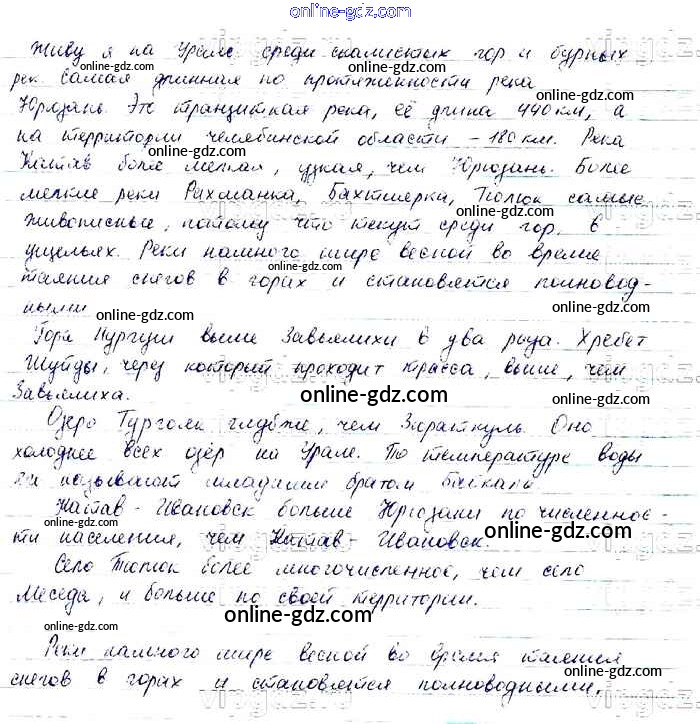 online-gdz.com
Живу я на Урале среди скалистых гор и бурных
рек. Самая длинная по протяженности река
online-gdz.com
Юрюзань. Это транзитная река, её длина 440 км, а
на территории Челябинской области - 180 км. Река
online-gdz.com
Катав более мелкая, узкая, чем Юрюзань. Более
мелкие реки Рахмаатка, Бахтиярка, Тюлюк самые
online-gdz.com
живописные, потому что текут среди гор, в
ущельях. Реки намного шире весной во время
online-gdz.com
таяния снегов в горах и становятся полновод-
ными
online-gdz.com
online-gdz.com
Гора Нургуш выше Завьялихи в два раза. Хребет
Шуйды, через который проходит трасса, выше, чем
Завьялиха.
online-gdz.com
Озеро Тургояк глубже, чем Зюраткуль. Оно
холоднее всех озёр на Урале. По температуре воды
online-gdz.com
называют младшим братом Байкала
Катав-Ивановск больше Юрюзани по численнос-
online-gdz.com
ти населения, чем Катав-Ивановск.
online-gdz.com
Село Тюлюк более многочисленное, чем село
Меседа, и больше по своей территории.
online-gdz.com
Реки намного шире весной во время таяния
снегов в горах и становятся полноводными.
online-gdz.com